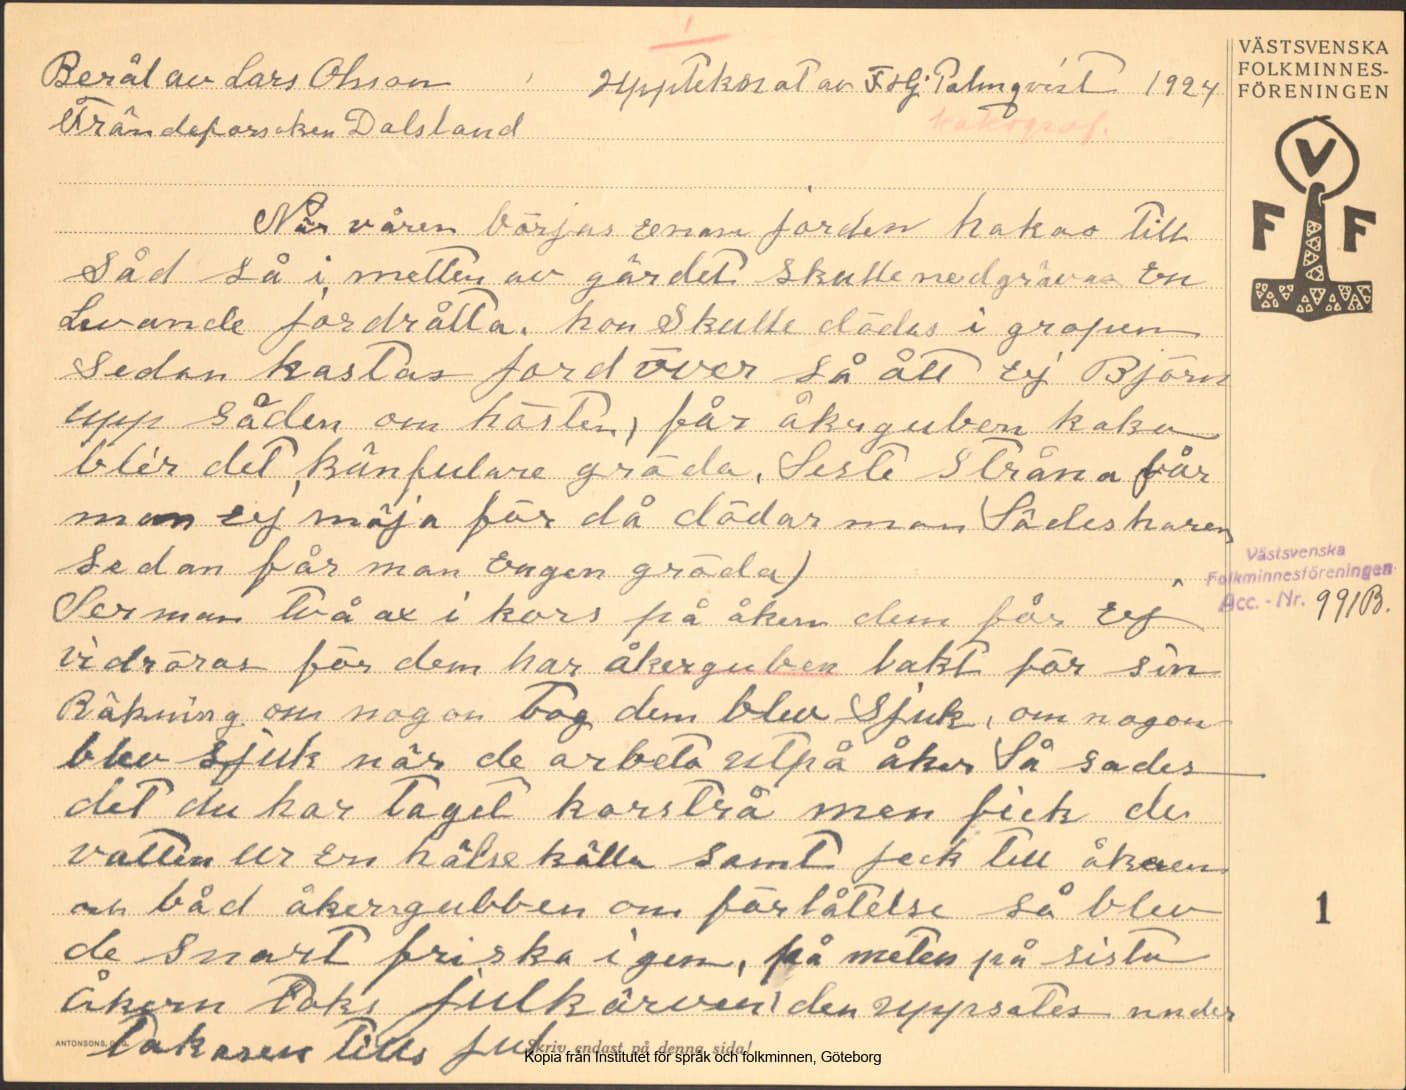 1
Berät av Lars Olsson
Uppteknat av F Hj. Palmqvist 1924
Frändeforsoken Dalsland
VÄSTSVENSKA
FOLKMINNES-
FÖRENINGEN
V
F F
När våren börjas enan jorden hakas till
Såd så i metten av gärdet skulle nedgrävas En
Levande jordråtta. hon Skulle dödas i gropen
Sedan kastas jord över så ått Ej Björn
upp Såden om hösten, får åkerguben kaka
blir det känfulare gröda. Seste Stråna får
man Ej mäja för då dödar man Sädesharen
Sedan får man Engen gröda)
Ser man två ax i kors på åkern dem får Ej
vidröras för dem har åkerguben lakt för sin
Räkning om nogon tog dem blev Sjuk, om nogon
blev sjuk när de arbeta utpå åker Så sades
det du har taget korsträ men fick de
vatten ur En hälse källa samt jeck till åkeren
och båd åkergubben om förlåtelse så blev
de snart friska igen, på meten på sista
åkern toks julkärven den uppsates under
takasen tills jul
Västsvenska
Folkminnesföreningen
Acc. - Nr. 991B.
1
ANTONSONS, GBG.
Skriv endast på denna sida!
Kopia från Institutet för språk och folkminnen, Göteborg